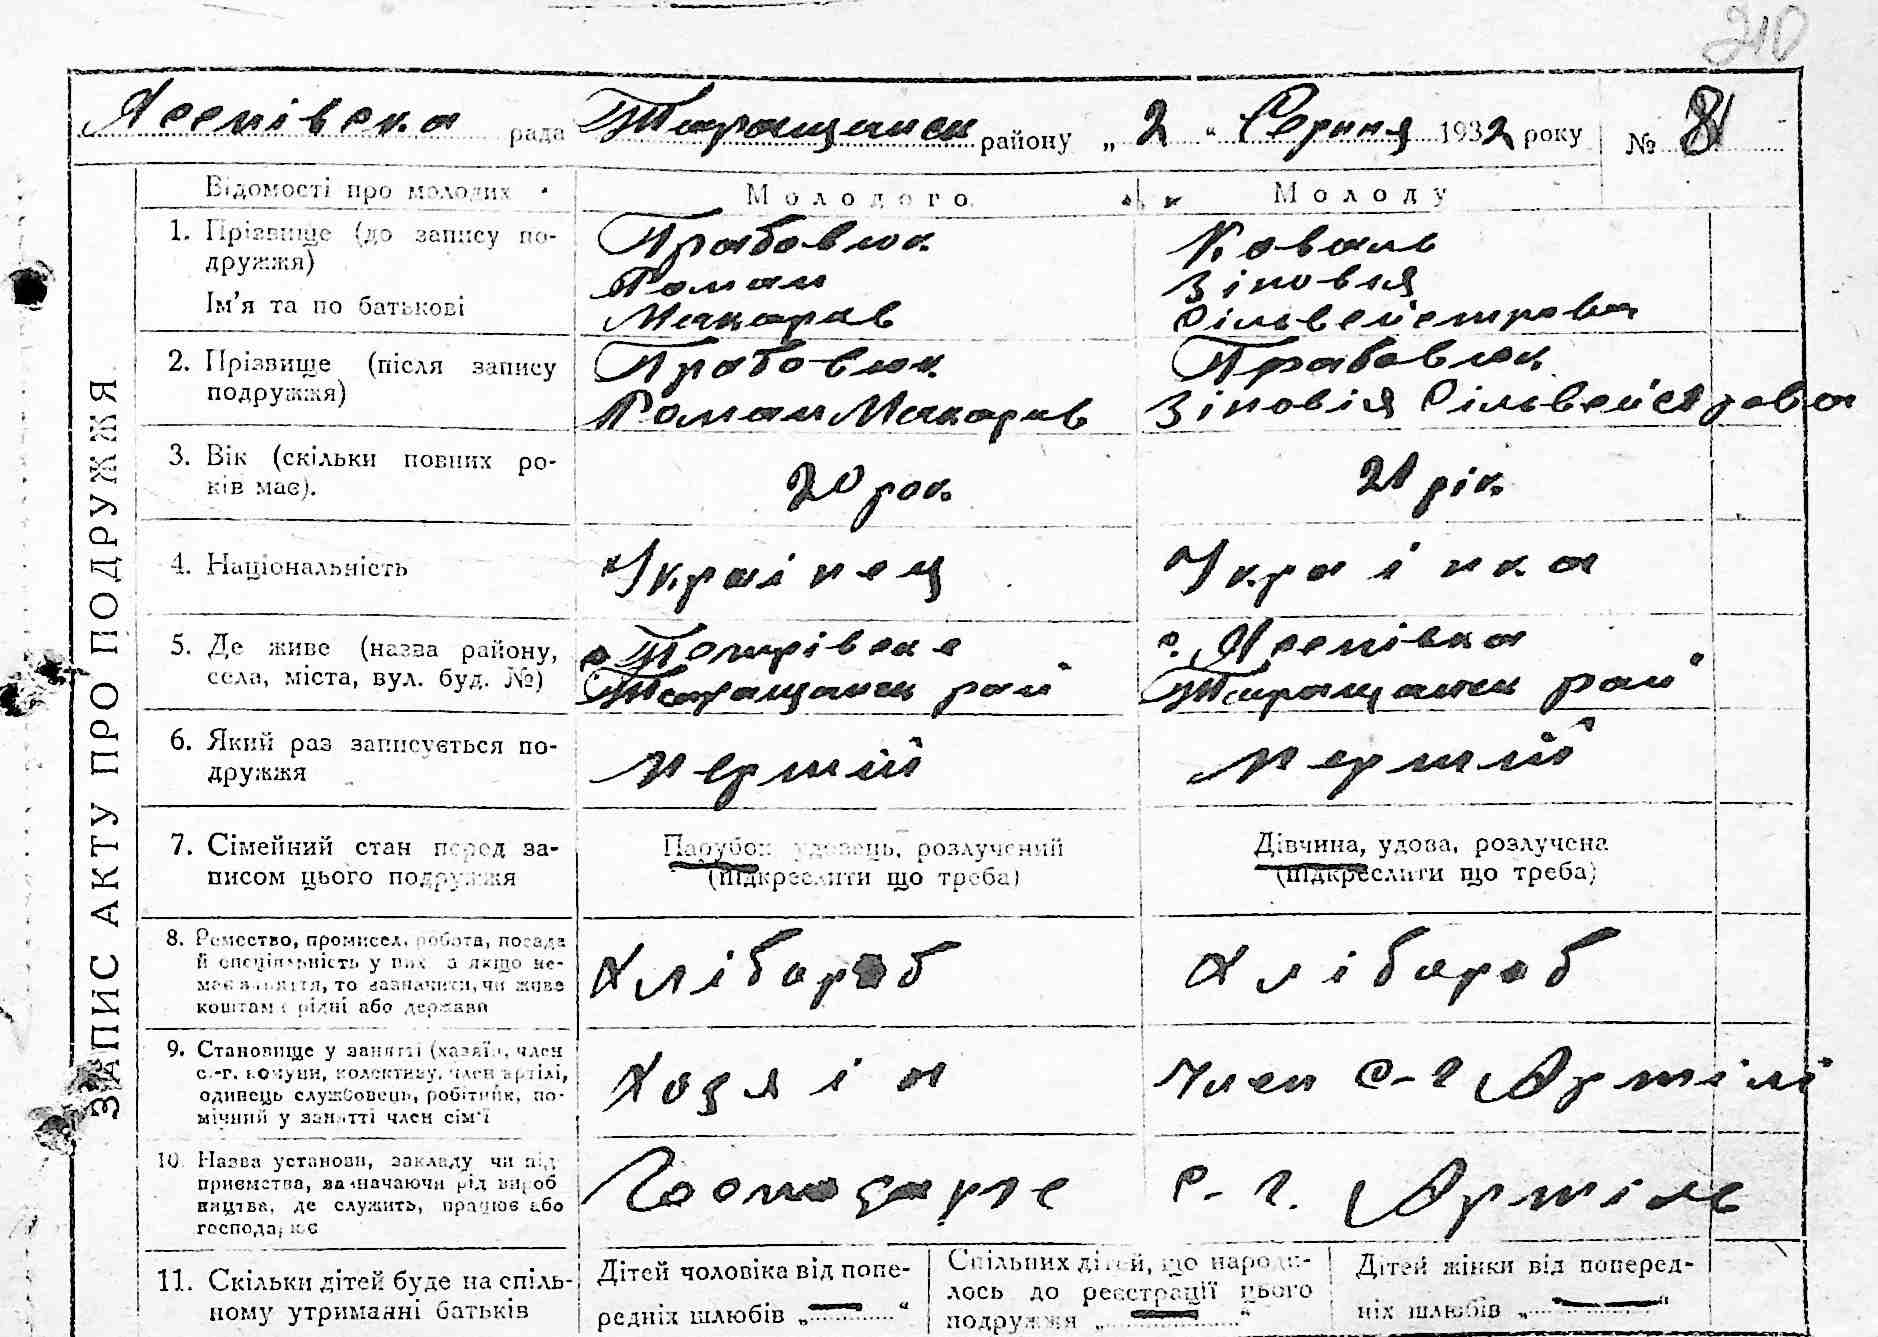 210
Ясепівска рада Таращанск району „ 2 " Серпня 1932 року № 8
ЗАПИС АКТУ ПРО ПОДРУЖЖЯ
Відомості про молодих Молодого Молоду
1. Прізвище (до запису по-
дружжя)
Ім'я та по батькові
Грабовюк
Роман
Макарів
Коваль
Зіновія
Сільвейстрова
2. Прізвище (після запису
подружжя)
Грабовюк
Роман Макарів
Грабовюк
Зіновія Сільвейстрова
3. Вік (скільки повних ро-
ків має).
20 рок.
21 рік.
4. Національність
Украінец
Украінка
5. Де живе (назва району,
села, міста, вул. буд. №)
с Петрівске
Таращанск рай
с. Ясепівка
Таращанск рай
6. Який раз записується по-
дружжя
перший
перший
7. Сімейний стан перед за-
писом цього подружжя
Парубок удовець, розлучений
(підкреслити що треба)
Дівчина, удова, розлучена
(підкреслити що треба)
8. Ремество, промисел, робота, посада
й спеціяльність у них, а якщо не-
має заняття, то зазначити, чи живе
коштами рідні або держави
Хлібороб
Хлібороб
9. Становище у занятті (хазяїн, член
с.-г. комуни, колективу, член артілі,
одинець службовець, робітник, по-
мічний у занятті член сім'ї
Хозяін
Член С-г Артілі
10. Назва установи, закладу чи під-
приємства, зазначаючи рід вироб
ництва, де служить, працює або
господарює
Господарує
с.-г. Артіль
11. Скільки дітей буде на спіль-
ному утриманні батьків
Дітей чоловіка від попе-
редніх шлюбів „ — "
Спільних дітей, що народи-
лось до реєстрації цього
подружжя „ — "
Дітей жінки від поперед-
ніх шлюбів „ — "